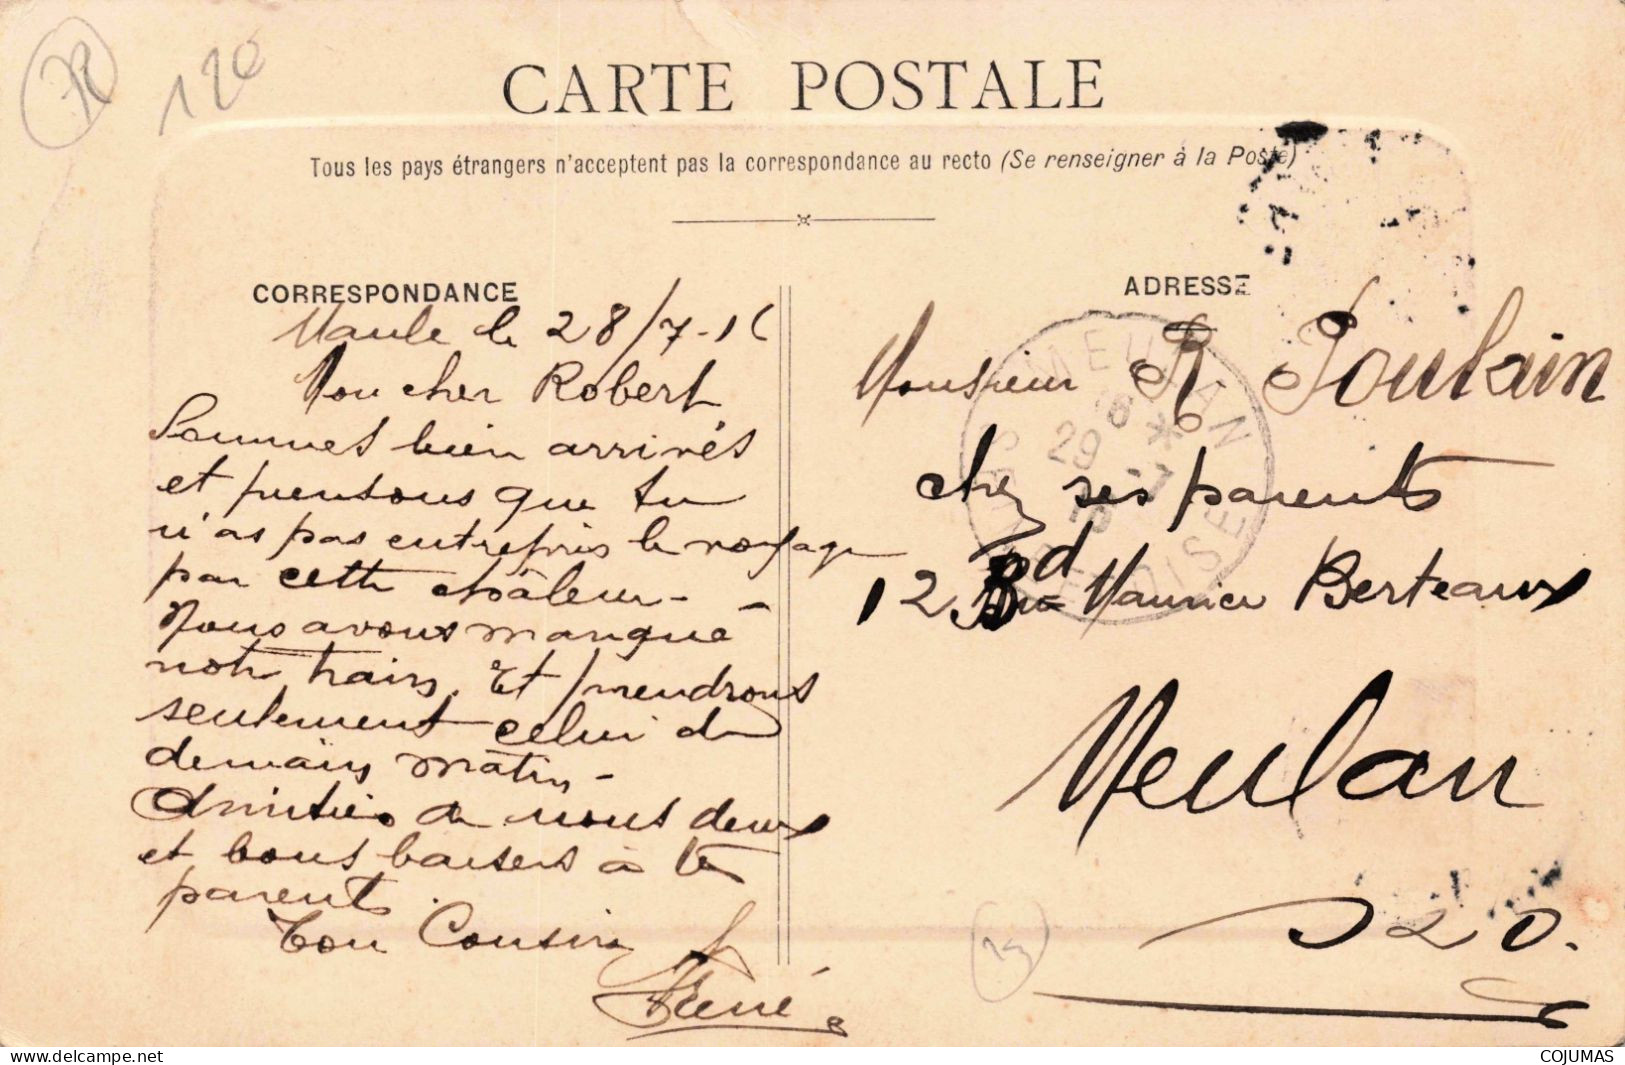 120
CARTE POSTALE
Tous les pays étrangers n'acceptent pas la correspondance au recto (Se renseigner à la Poste)
CORRESPONDANCE
Maule le 28/7-1
Mon cher Robert
Sommes bien arrivés
et pensons que tu
n'as pas entrepris le voyage
par cette châleur -
Nous avons manqué
notre train. Et prendrons
seulement celui de
demain matin -
Amitiés de nous deux
et bons baisers à tes
parents.
Ton Cousin
René
ADRESSE
Monsieur R Poulain
chez ses parents
12 Bd Maurice Berteaux
Meulan
S & O.
MEULAN
29 -7
SEINE-ET-OISE
www.delcampe.net
COJUMAS